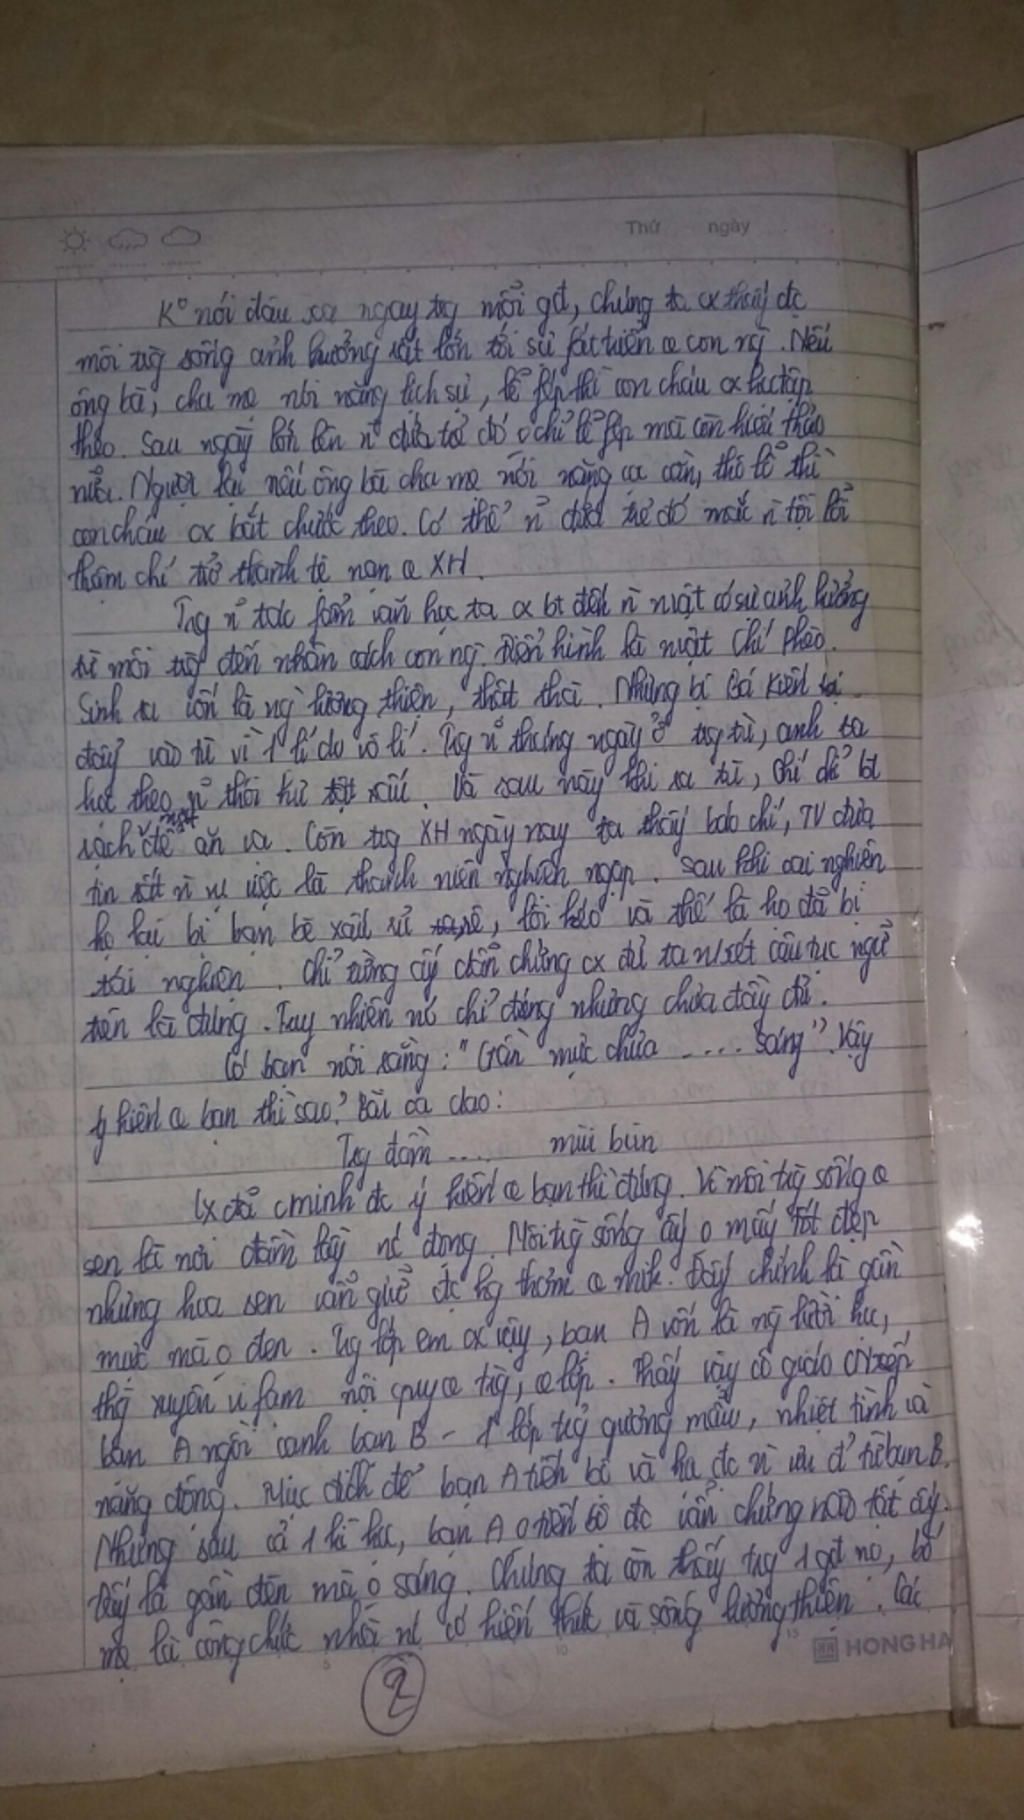 Thứ ngày
K° nói đâu xa ngay tg mỗi gđ, chúng ta cx thấy đc
môi tg sống ảnh hưởng rất lớn tới sự fát triển @ con ng. Nếu
ông bà, cha mẹ nói năng lịch sự, lễ fép thì con cháu cx học tập
theo. Sau ngày lớn lên n~ đứa trẻ đó o chỉ lễ fép mà còn hiếu thảo
nữa. Ngược lại nếu ông bà cha mẹ nói năng cằn, thô lỗ thì
con cháu cx bắt chước theo. Có thể n~ đứa trẻ đó mắc n` tội lỗi
thậm chí trở thành tệ nạn @ XH.
Tg n~ tác fẩm văn học ta cx bt đến n` n.vật có sự ảnh hưởng
từ môi tg đến nhân cách con ng. Điển hình là n.vật Chí Phèo.
Sinh ra vốn là ng lương thiện, thật thà. Nhưng bị Bá Kiến
đẩy vào tù vì 1 lí do vô lí. Tg n~ tháng ngày ở tg tù, anh ta
học theo n~ thói hư tật xấu. Và sau này khi ra tù, Chí đã bt
rạch mặt để ăn vạ. Còn tg XH ngày nay ta thấy báo chí, TV đưa
tin rất n` vụ việc là thanh niên nghiện ngập. Sau khi cai nghiện
họ lại bị bạn bè xấu rủ rê, lôi kéo và thế là họ đã bị
tái nghiện. Chỉ từng ấy dẫn chứng cx đủ ta n/xét câu tục ngữ
trên là đúng. Tuy nhiên nó chỉ đúng nhưng chưa đầy đủ.
Có bạn nói rằng: "Gần mực chưa .... sáng". Vậy
ý kiến @ bạn thì sao? Bài ca dao:
Tg đầm .... mùi bùn
Cx đã c/minh đc ý kiến @ bạn thì đúng. Vì môi tg sống @
sen là nơi đầm lầy nc đọng. Môi tg sống ấy o mấy tốt đẹp
nhưng hoa sen vẫn giữ đc hg thơm @ mik. Đây chính là gần
mực mà o đen. Tg lớp em cx vậy, bạn A vốn là ng lười học,
thg xuyên vi fạm nội quy @ tg, @ lớp. Thấy vậy cô giáo xếp
bạn A ngồi cạnh bạn B - 1 lớp trg gương mẫu, nhiệt tình và
năng động. Mục đích để bạn A tiến bộ và học đc n` ưu đ' từ bạn B.
Nhưng sau cả 1 kì học, bạn A o tiến bộ đc vẫn chứng nào tật ấy.
Đấy là gần đèn mà o sáng. Chúng ta còn thấy tg 1 gđ nọ, bố
mẹ là công chức nhà nc có kiến thức và sống lương thiện. Các
HONG HA
2